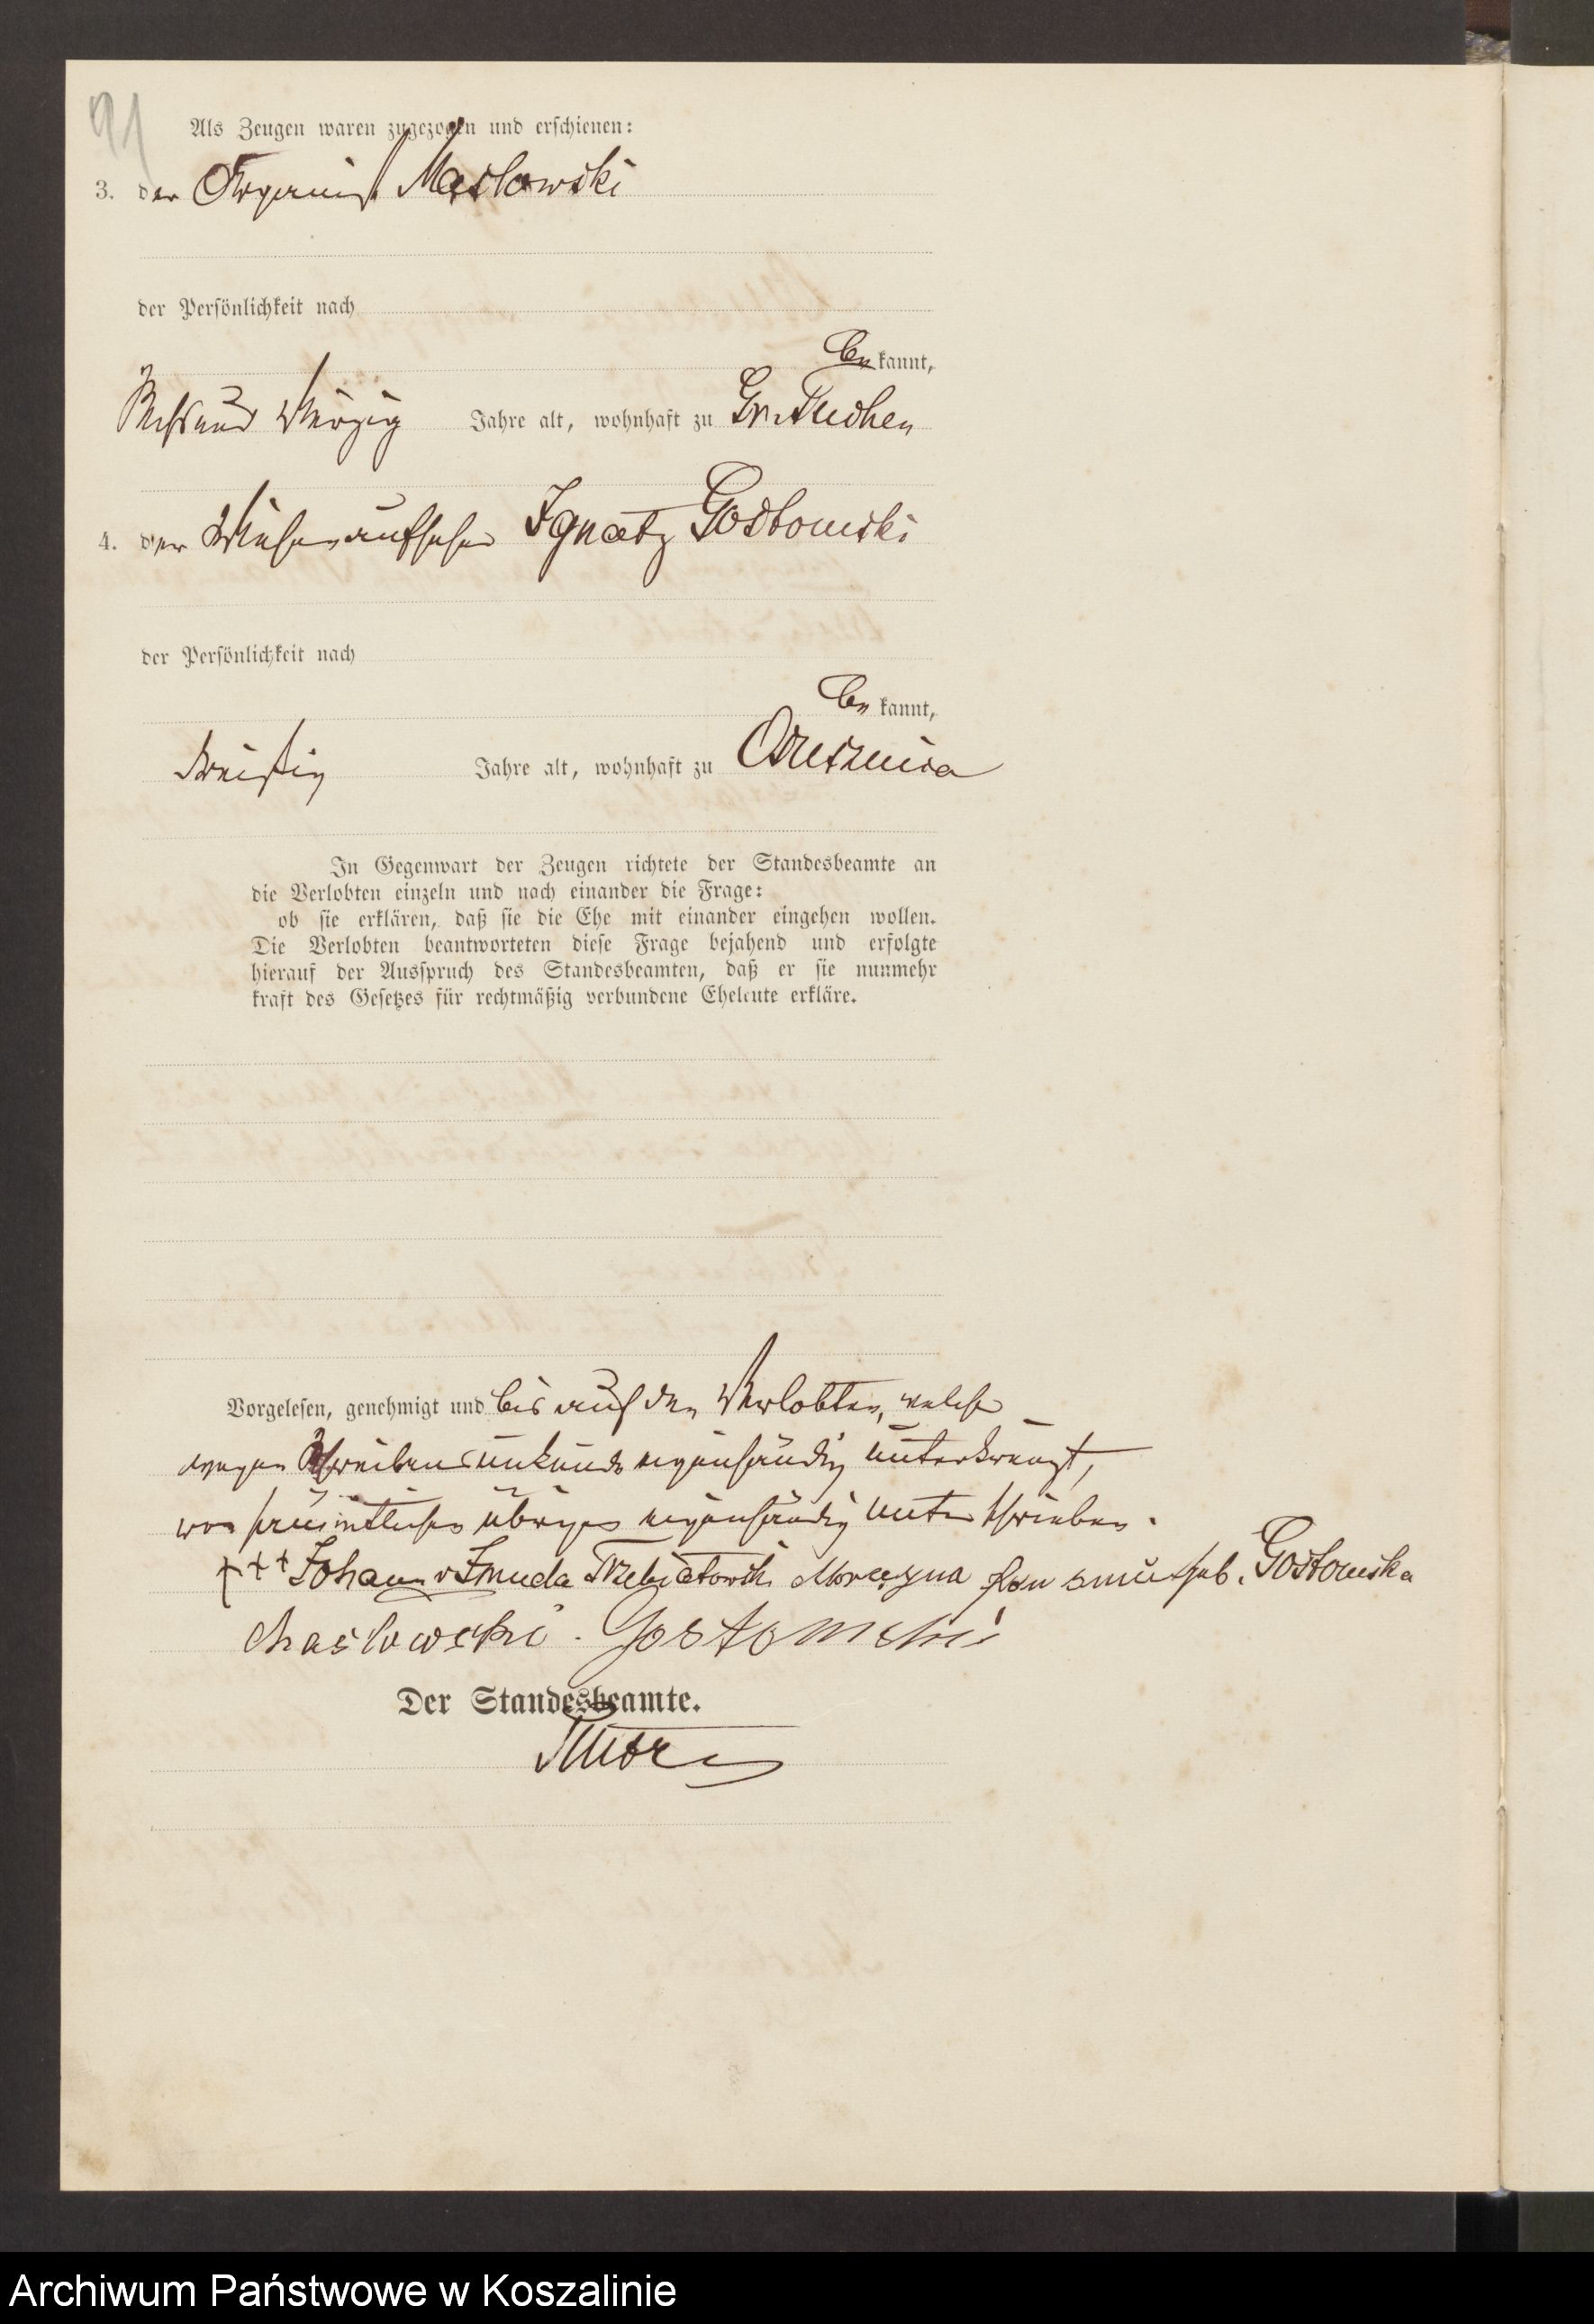 91
Als Zeugen waren zugezogen und erschienen:
3. der Organist Maslowski
der Persönlichkeit nach
bekannt,
Acht und Vierzig Jahre alt, wohnhaft zu Gr. Tuchen
4. der Wiesenaufseher Ignatz Gostomski
der Persönlichkeit nach
bekannt,
dreißig Jahre alt, wohnhaft zu
In Gegenwart der Zeugen richtete der Standesbeamte an
die Verlobten einzeln und nach einander die Frage:
ob sie erklären, daß sie die Ehe mit einander eingehen wollen.
Die Verlobten beantworteten diese Frage bejahend und erfolgte
hierauf der Ausspruch des Standesbeamten, daß er sie nunmehr
kraft des Gesetzes für rechtmäßig verbundene Eheleute erkläre.
Vorgelesen, genehmigt und bis auf den Verlobten, welcher
wegen Schreibensunkunde eigenhändig unterkreuzt,
von sämmtlichen übrigen eigenhändig unterschrieben.
+++ Johann v Zmuda Trzebiatowski geb. Gostomska
Maslowski. Gostomski
Der Standesbeamte.
Archiwum Państwowe w Koszalinie